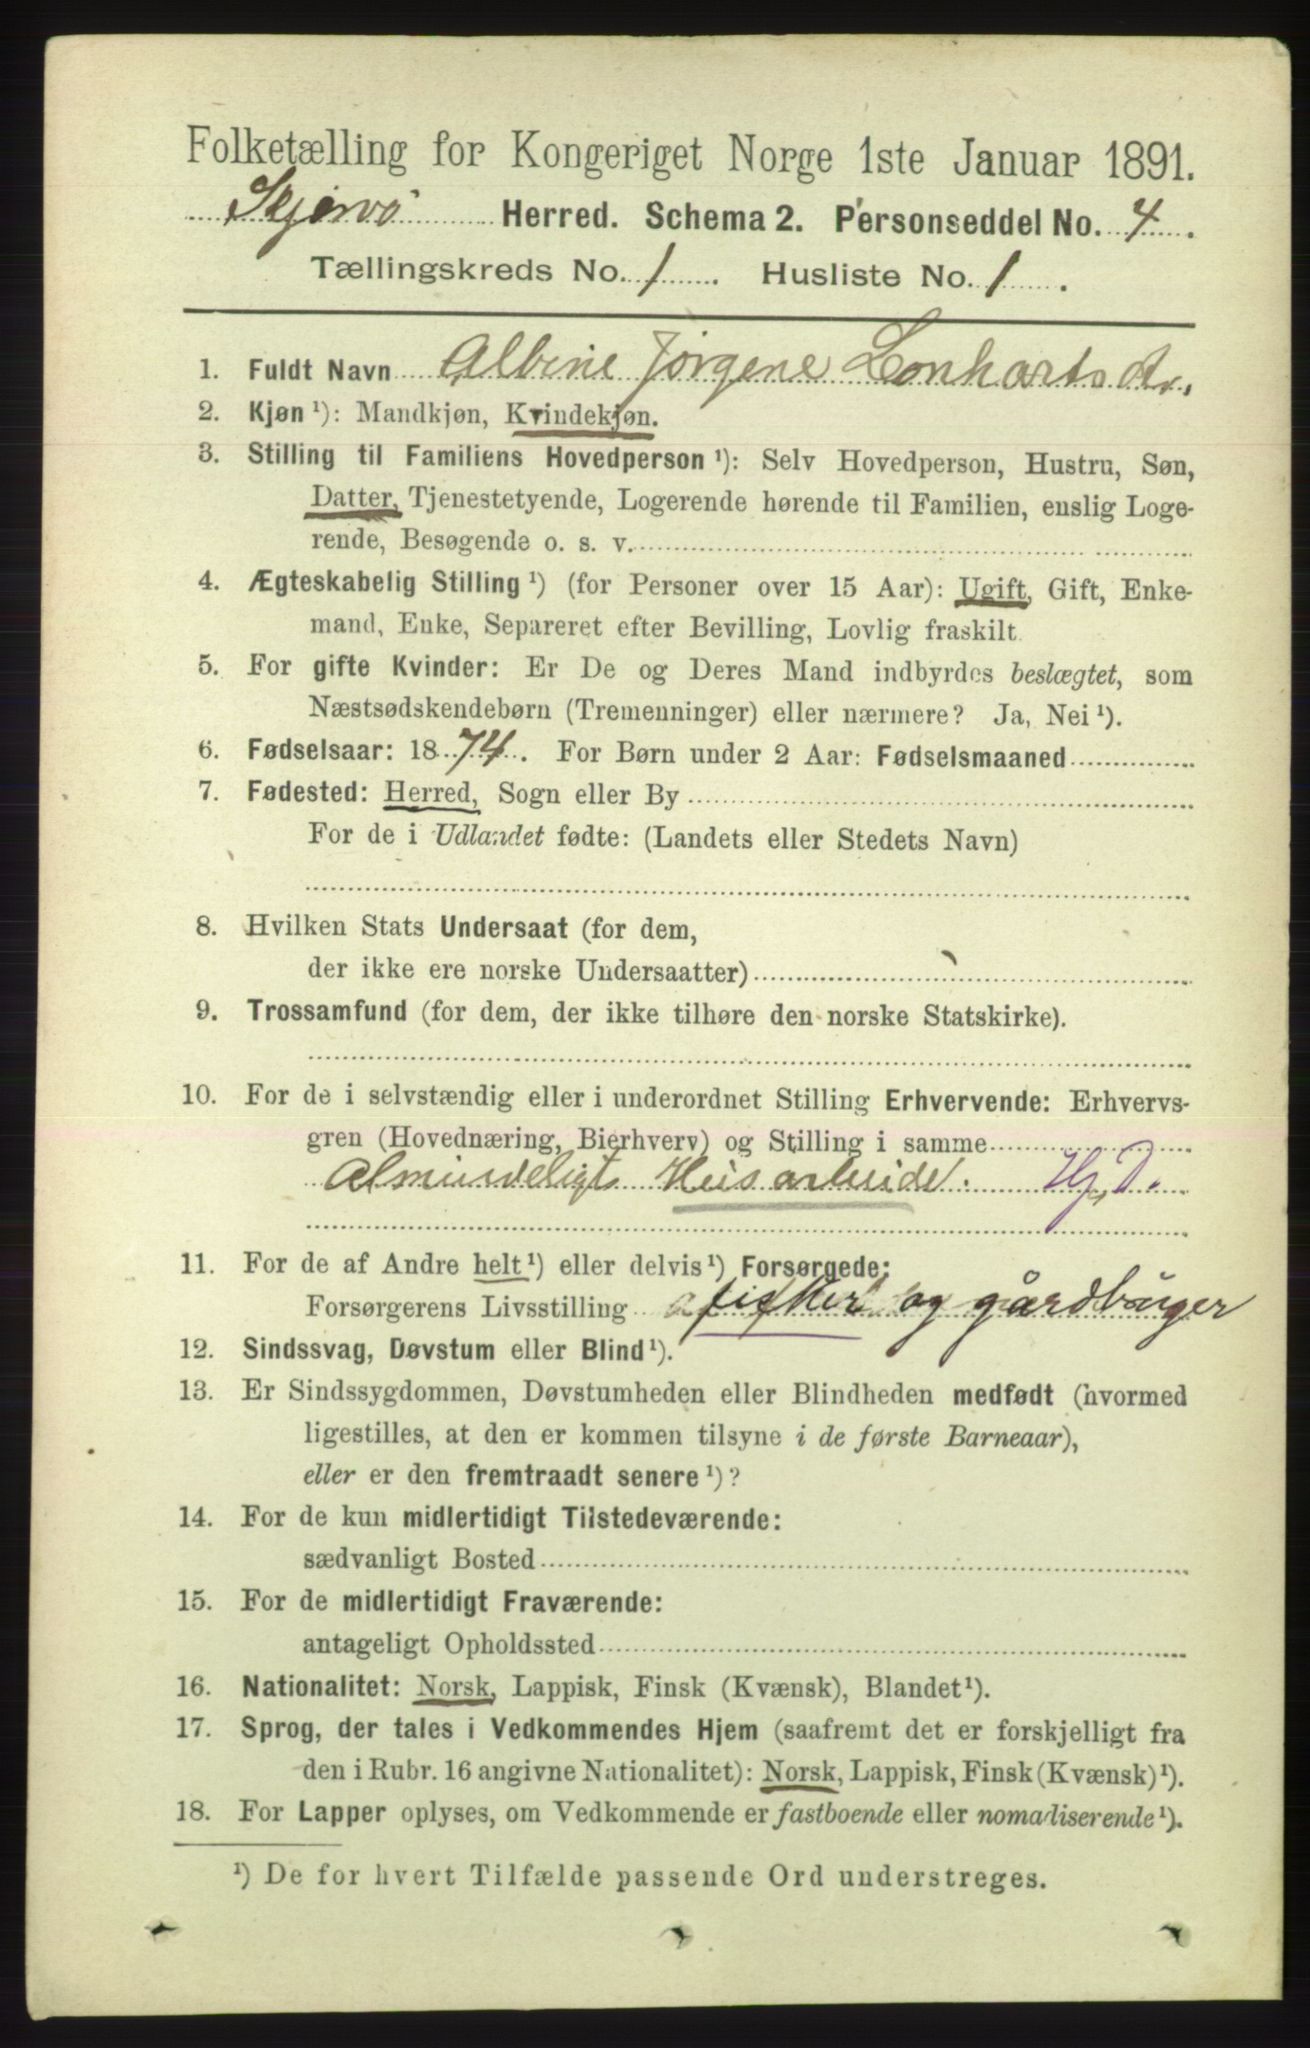 Folketælling for Kongeriget Norge 1ste Januar 1891.
Skjervö Herred. Schema 2. Personseddel No. 4.
Tællingskreds No. 1. Husliste No. 1.
1. Fuldt Navn Albine Jörgene Lonhartsdtr.
2. Kjøn¹): Mandkjøn, Kvindekjøn.
3. Stilling til Familiens Hovedperson¹): Selv Hovedperson, Hustru, Søn,
Datter, Tjenestetyende, Logerende hørende til Familien, enslig Loge-
rende, Besøgende o. s. v.
4. Ægteskabelig Stilling¹) (for Personer over 15 Aar): Ugift, Gift, Enke-
mand, Enke, Separeret efter Bevilling, Lovlig fraskilt
5. For gifte Kvinder: Er De og Deres Mand indbyrdes beslægtet, som
Næstsødskendebørn (Tremenninger) eller nærmere? Ja, Nei¹).
6. Fødselsaar: 1874. For Børn under 2 Aar: Fødselsmaaned
7. Fødested: Herred, Sogn eller By
For de i Udlandet fødte: (Landets eller Stedets Navn)
8. Hvilken Stats Undersaat (for dem,
der ikke ere norske Undersaatter)
9. Trossamfund (for dem, der ikke tilhøre den norske Statskirke).
10. For de i selvstændig eller i underordnet Stilling Erhvervende: Erhvervs-
gren (Hovednæring, Bierhverv) og Stilling i samme
Almindeligt Husarbeide. Hj. D.
11. For de af Andre helt¹) eller delvis¹) Forsørgede:
Forsørgerens Livsstilling fisker og gårdbruger
12. Sindssvag, Døvstum eller Blind¹).
13. Er Sindssygdommen, Døvstumheden eller Blindheden medfødt (hvormed
ligestilles, at den er kommen tilsyne i de første Barneaar),
eller er den fremtraadt senere¹)?
14. For de kun midlertidigt Tilstedeværende:
sædvanligt Bosted
15. For de midlertidigt Fraværende:
antageligt Opholdssted
16. Nationalitet: Norsk, Lappisk, Finsk (Kvænsk), Blandet¹).
17. Sprog, der tales i Vedkommendes Hjem (saafremt det er forskjelligt fra
den i Rubr. 16 angivne Nationalitet): Norsk, Lappisk, Finsk (Kvænsk)¹).
18. For Lapper oplyses, om Vedkommende er fastboende eller nomadiserende¹).
¹) De for hvert Tilfælde passende Ord understreges.